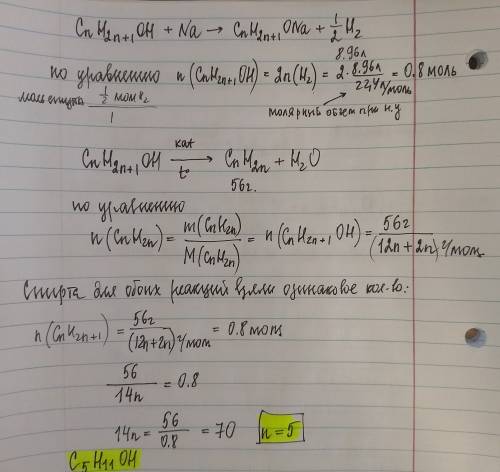 CnH2n+1OH + Na → CnH2n+1ONa + 1/2 H2
8.96л
по уравнению n(CnH2n+1OH) = 2n(H2) = 2·8.96л / 22,4 л/моль = 0.8 моль
моль спирта 1/2 моль H2
1
молярный объем при н.у
CnH2n+1OH kat → t° CnH2n + H2O
56г.
по уравнению
n(CnH2n) = m(CnH2n) / M(CnH2n) = n(CnH2n+1OH) = 56г / (12n+2n) г/моль
Спирта для обоих реакций взяли одинаковое кол-во:
n(CnH2n+1) = 56г / (12n+2n) г/моль = 0.8 моль
56 / 14n = 0.8
14n = 56 / 0.8 = 70 n=5
C5H11OH